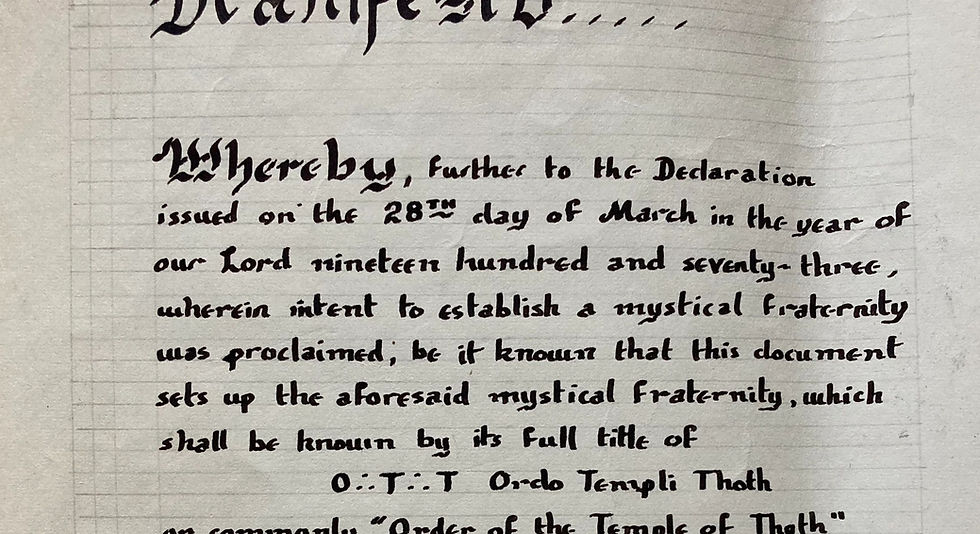 Manifesto.....
Whereby, further to the Declaration
issued on the 28TH day of March in the year of
our Lord nineteen hundred and seventy-three,
wherein intent to establish a mystical fraternity
was proclaimed; be it known that this document
sets up the aforesaid mystical fraternity, which
shall be known by its full title of
O∴T∴T Ordo Templi Thoth
or commonly "Order of the Temple of Thoth"